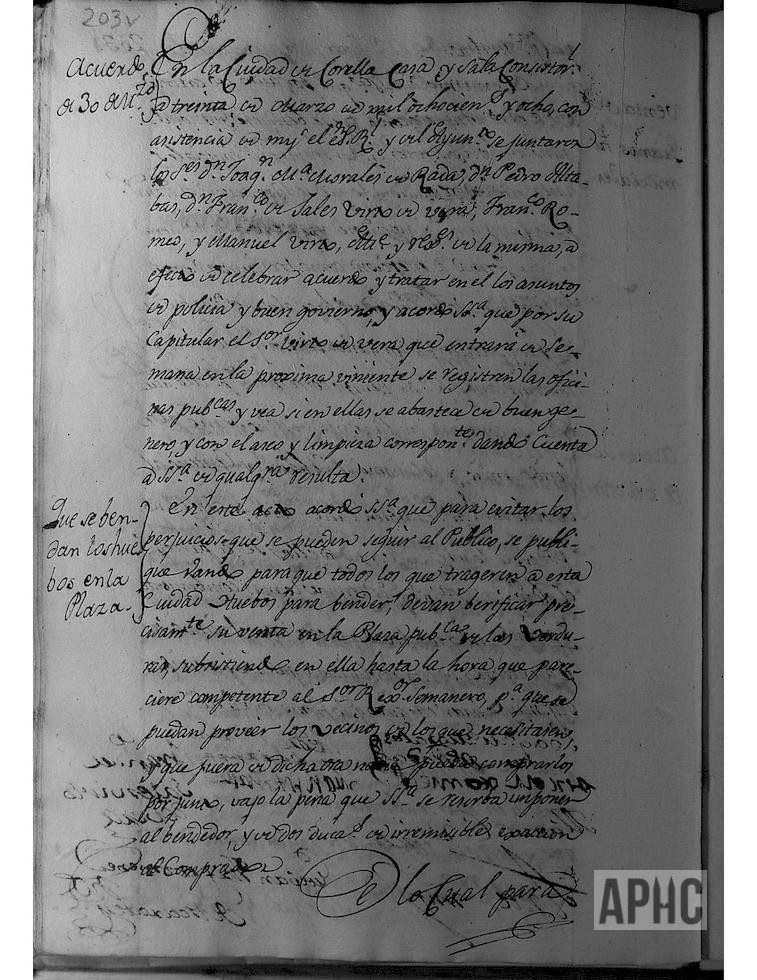 203v
Acuerdo
de 30 de Mzo
En la Ciudad de Corella Casa y Sala Consistorl.
a treinta de Marzo de mil ochocienos y ocho, con
asistencia de my el esno Rl y del Ayunto se juntaron
los Sres Dn Joaqn Ma Morales de Rada, Dn Pedro Alta-
bas, Dn Franco de Sales Virto de Vera, Franco Ro-
meo, y Manuel Virto, Alce y rexres de la misma, a
efecto de celebrar acuerdo y tratar en el los asuntos
de policia y buen govierno, y acordó SSa que por su
Capitular el Sor Virto de Vera que entrará de Se-
mana en la proxima viniente se registren las ofici-
nas pubcas y vea si en ellas se abastece de buen ge-
nero, y con el aseo y limpieza corresponte dando Cuenta
a SSa de qualqra resulta.
Que se ben-
dan los hue-
bos en la
Plaza.
En este acto acordó SSa que para evitar los
perjuicios que se pueden seguir al Publico, se publi-
que vando para que todos los que trageren a esta
Ciudad Huebos para bender, devan berificar pre-
cisamte su venta en la Plaza pubca de las Verdu-
ras, subsistiendo en ella hasta la hora que pare-
ciere competente al Sor Rexor Semanero, pa que se
puedan proveer los vecinos de los que necesitaren,
y que fuera de dicha ora nadie pueda comprarlos
por junto, vajo la pena que SSa se reserba imponer
al bendedor, y de dos ducados de irremisible exaccion
al Comprador
De lo Cual para
APHC